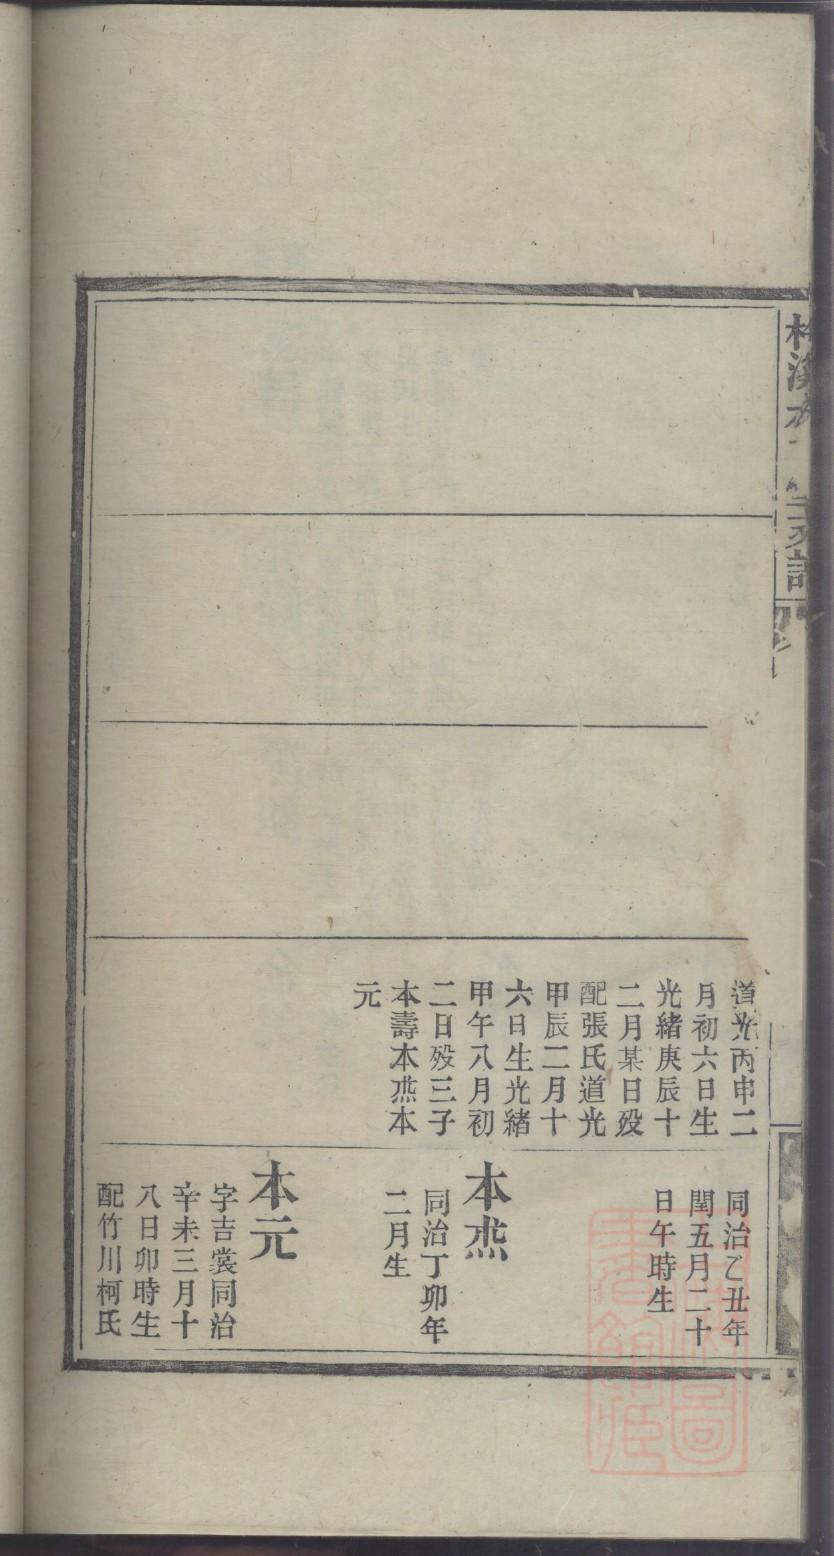 道光丙申二
月初六日生
光緒庚辰十
二月某日歿
配張氏道光
甲辰二月十
六日生光緒
甲午八月初
二日歿三子
本壽本烝本
元
同治乙丑年
閏五月二十
日午時生
本烝
同治丁卯年
二月生
本元
字吉裳同治
辛未三月十
八日卯時生
配竹川柯氏